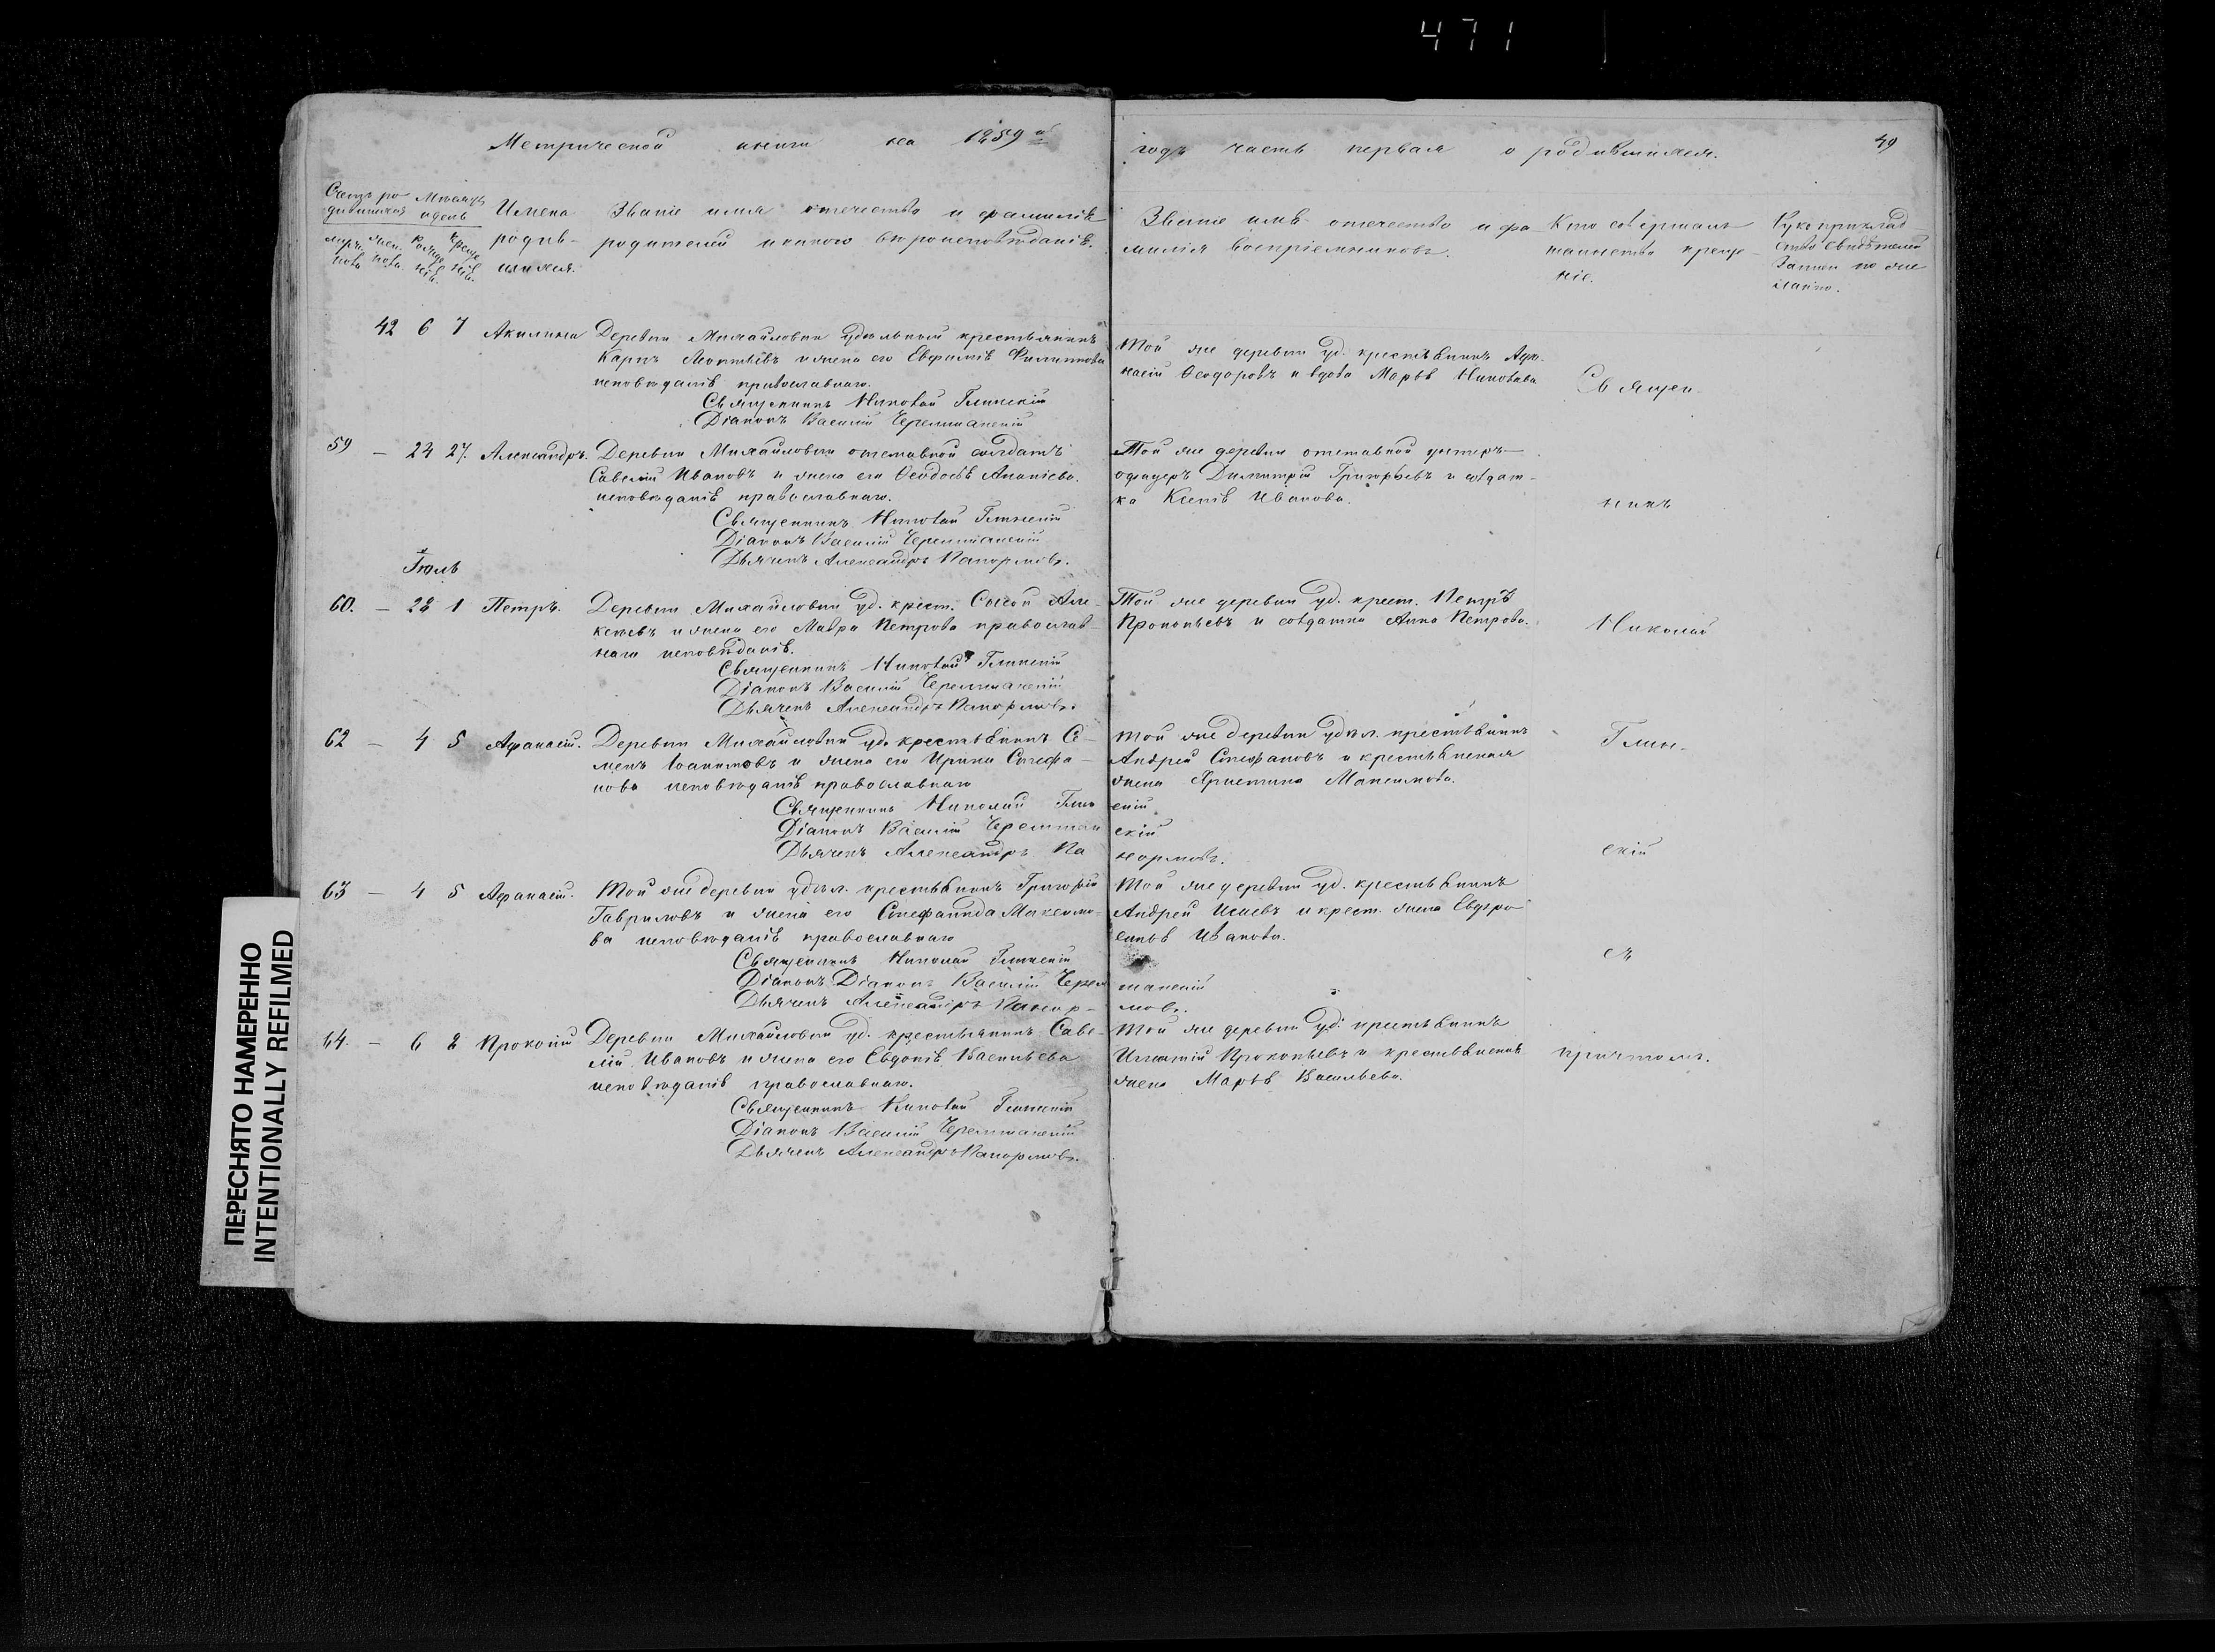 471
Метрической книги на 1859 й
годъ часть первая о родившихся.
49
Счетъ ро-
дившихся
Мѣсяцъ
и день
муже-
ска
жен-
ска
рожде-
нія
креще-
нія.
Имена
родив-
шихся.
Званіе имя отчество и фамилія
родителей и какого вѣроисповѣданія.
Званіе имя отчество и фа
милія воспріемниковъ.
Кто совершалъ
таинство креще-
ніе.
Рукоприклад
ство свидѣтелей
записи по же
ланію.
42 6 7 Акилина Деревни Михайловки удѣльный крестьянинъ
Карпъ Леонтьевъ и жена его Евфимія Филиппова
исповѣданія православнаго.
Священникъ Николай Глинскій
Діаконъ Василій Черемшанскій
Той же деревни уд. крестьянинъ Афа-
насій Ѳеодоровъ и вдова Марья Никонова
Священ-
59 — 24 27. Александръ. Деревни Михайловки отставной солдатъ
Савелій Ивановъ и жена его Ѳеодосья Ананіева.
исповѣданія православнаго.
Священникъ Николай Глинскій
Діаконъ Василій Черемшанскій
Дьячекъ Александръ Панормовъ.
Той же деревни отставной унтеръ-
офицеръ Димитрій Григорьевъ и солдат-
ка Ксенія Иванова.
никъ
Іюль
60. — 28 1 Петръ. Деревни Михайловки уд. крест. Сысой Але-
ксѣевъ и жена его Мавра Петрова православ-
наго исповѣданія.
Священникъ Николай Глинскій
Діаконъ Василій Черемшанскій
Дьячекъ Александръ Панормовъ.
Той же деревни уд. крест. Петръ
Прокопьевъ и солдатка Анна Петрова.
Николай
62 — 4 5 Афанасій. Деревни Михайловки уд. крестьянинъ Се-
менъ Іоакимовъ и жена его Ирина Стефа-
нова исповѣданія православнаго
Священникъ Николай Глин
скій
Діаконъ Василій Черемшан
скій
Дьячекъ Александръ Па
нормовъ.
Той же деревни удѣл. крестьянинъ
Андрей Стефановъ и крестьянская
жена Христина Максимова.
Глин-
скій
63 — 4 5 Афанасій. Той же деревни удѣл. крестьянинъ Григорій
Гавриловъ и жена его Стефанида Максимо-
ва исповѣданія православнаго
Священникъ Николай Глинскій
Діаконъ Діаконъ Василій Черем
шанскій
Дьячекъ Александръ Панор-
мовъ.
Той же деревни уд. крестьянинъ
Андрей Исаевъ и крест. жена Евфро
синья Иванова.
съ
64. — 6 8 Прокопій Деревни Михайловки уд. крестьянинъ Саве-
лій Ивановъ и жена его Евдокія Васильева
исповѣданія православнаго.
Священникъ Николай Глинскій
Діаконъ Василій Черемшанскій
Дьячекъ Александръ Панормовъ.
Той же деревни уд. крестьянинъ
Игнатій Прокопьевъ и крестьянская
жена Марья Васильева.
причтомъ.
ПЕРЕСНЯТО НАМЕРЕННО
INTENTIONALLY REFILMED